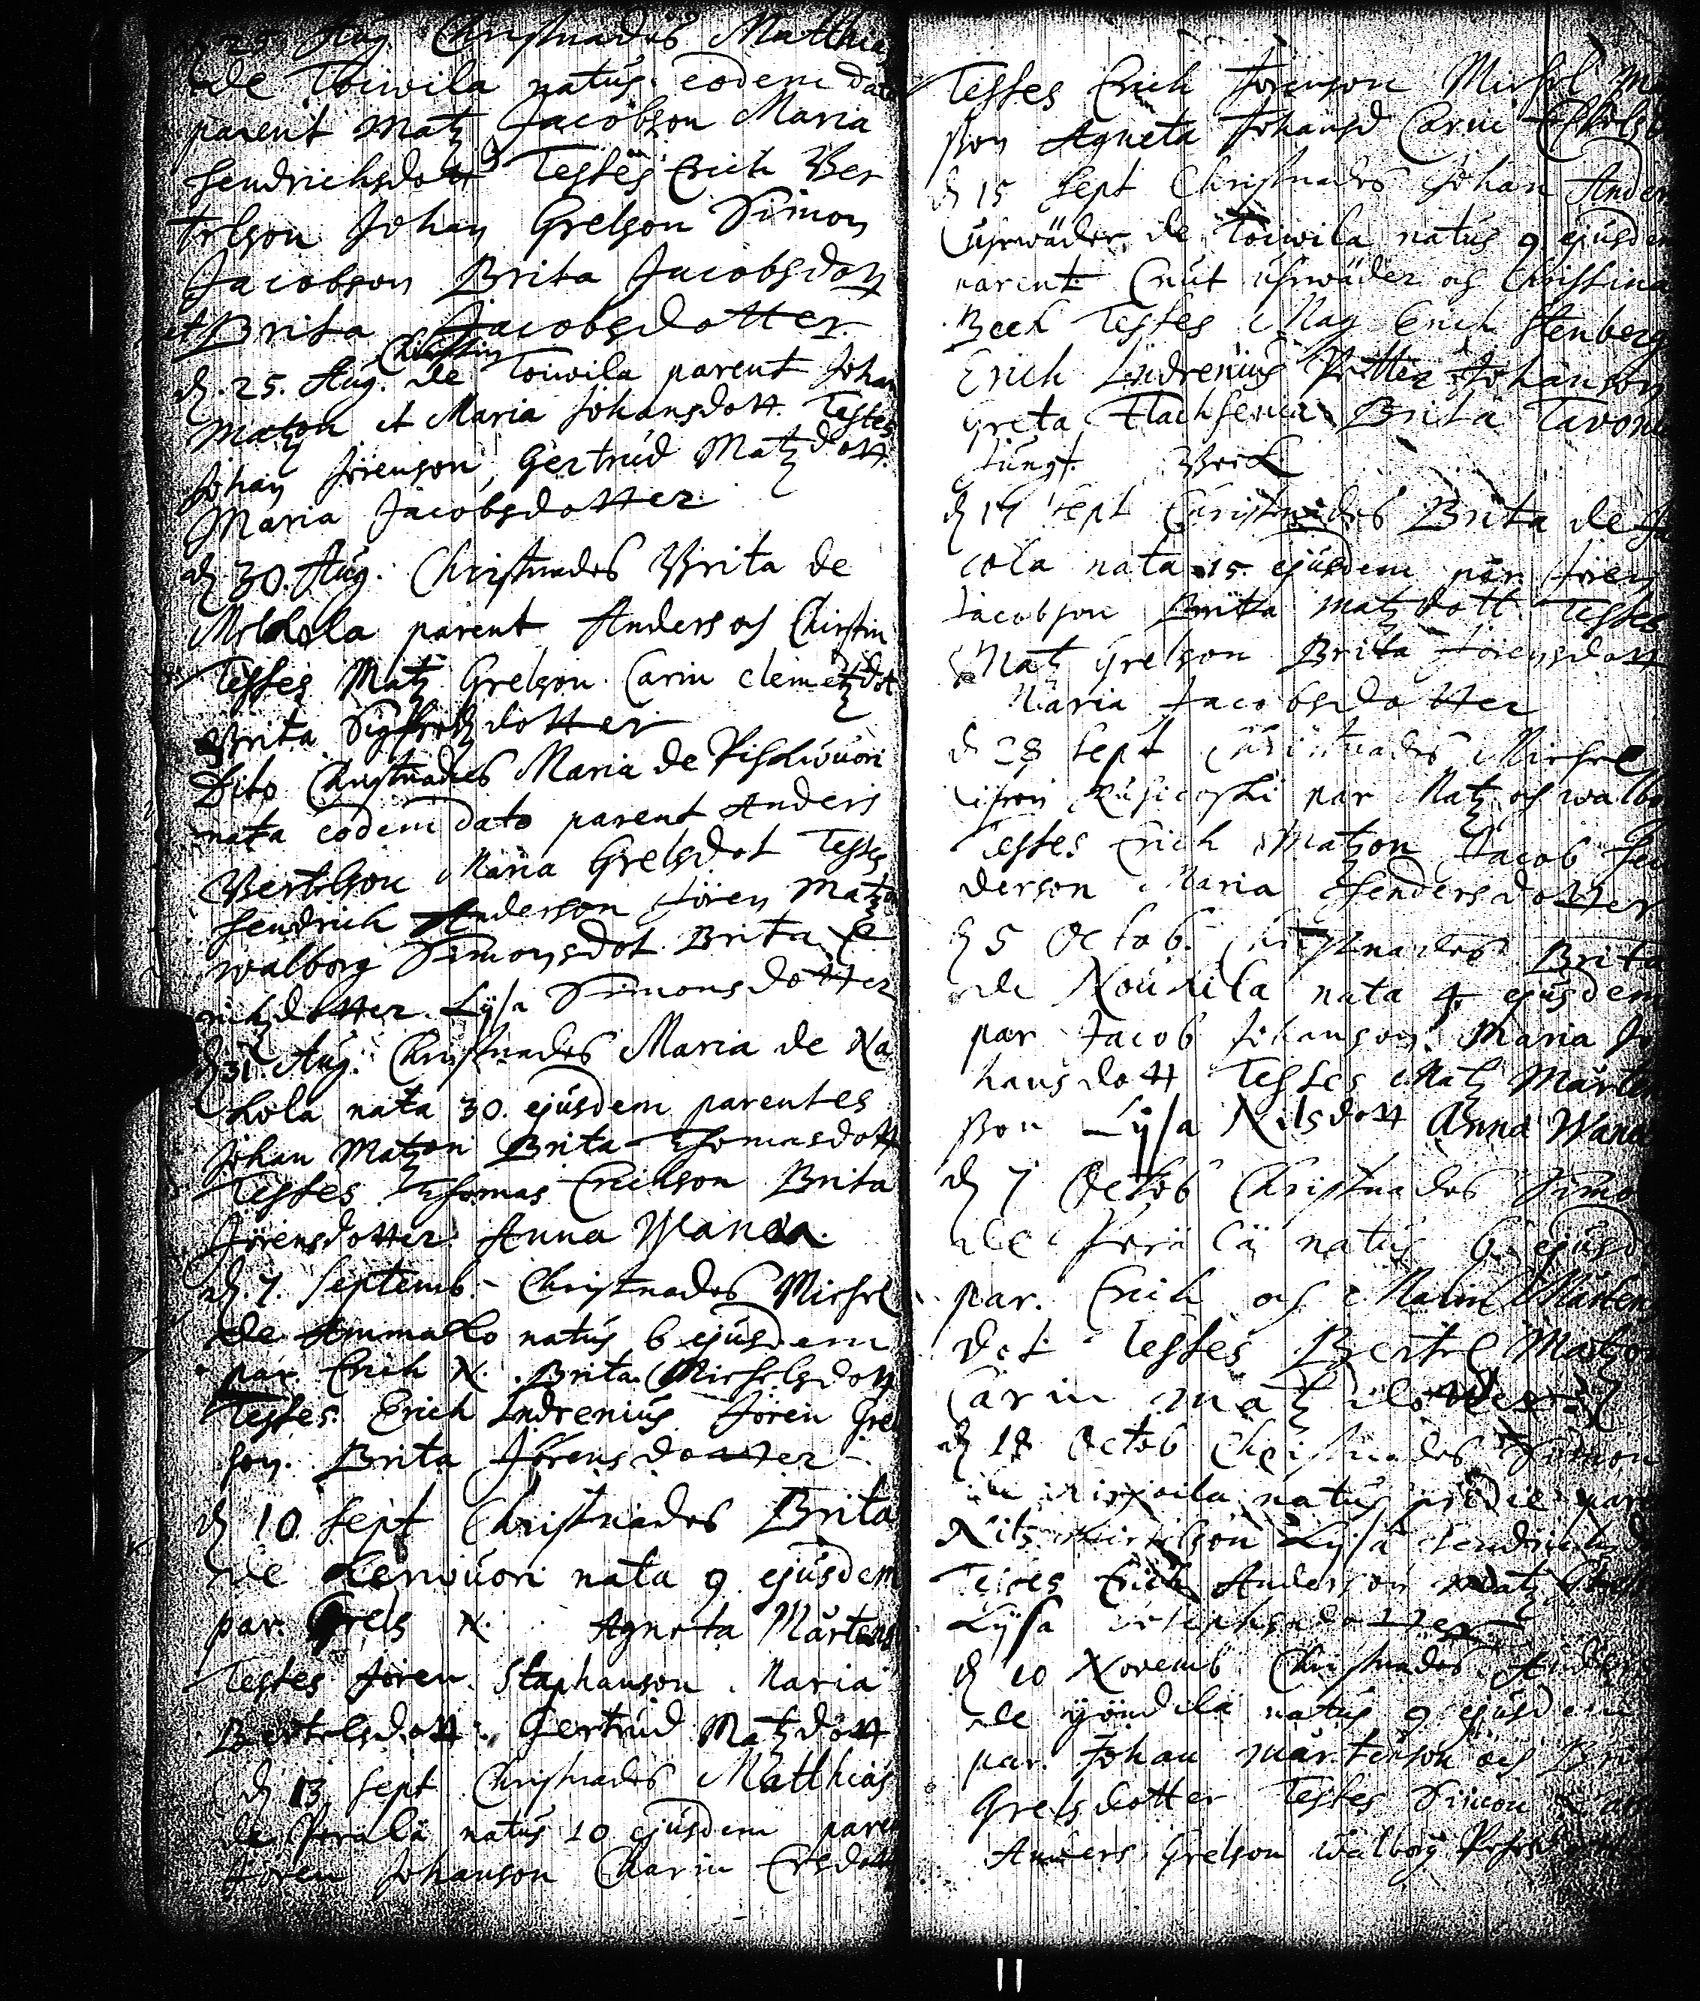 d. 25. Aug Christnades Matthias
de Toiwila natus eodem dato
parent Matz Jacobson Maria
hendrichsdott Testes Erich Ber
telson Johan Grelson Simon
Jacobson Brita Jacobsdott
et Brita Jacobsdotter
Christin
d. 25. Aug. de Toiwila parent Johan
Matzon et Maria Johansdott. Testes
Johan Jörenson, Gertrud Matzdott.
Maria Jacobsdotter
d. 30. Aug. Christnades Brita de
parent Anders och Christin
Testes Matz Grelson Carin clemetzdot
Brita Sigfredzdotter
Dito Christnades Maria de
nata eodem dato parent Anders
Bertelson Maria Grelsdot Testes
hendrich Anderson Jören Matzon
walborg Simonsdot Brita E
richzdotter Lysa Simonsdotter
d. 31. Aug. Christnades Maria de Na
kola nata 30. ejusdem parentes
Johan Matzon Brita Thomasdott
Testes Thomas Erichson Brita
Jörensdotter Anna Wanca.
d. 7. Septemb. Christnades Michel
de natus 6 ejusdem
par. Erich N. Brita Michelsdott
Testes. Erich Indrenius Jören Grel
son. Brita Jörensdotter
d. 10. Sept Christnades Brita
de nata 9 ejusdem
par. Grels N. Agneta Mårtens
Testes Jören Staphanson Maria
Bertelsdott Gertrud Matzdott
d. 13 Sept Christnades Matthias
de Perälä natus 10 ejusdem paren
Jören Johanson Charin Ersdott
Testes Erich Jörenson Michel Ma
son Agneta Johansd Carin
d. 15 Sept Christnades Johan Ander
de Toiwila natus 9 ejusdem
parent Cnut och Christina
Beck Testes Mag Erich Stenberg
Erich Indrenius Petter Johanson
Greta Brita
Jungf. Beck
d. 17 Sept Christnades Brita de
cola nata 15. ejusdem par. Jören
Jacobson Brita matzdott Testes
Matz Grelson Brita Jörensdott
Maria Jacobsdotter
d. 28 Sept Christnades Michel
par Matz och walbor
Testes Erich Matzon Jacob Hen
derson Maria Hendersdotter
d. 5 Octob. Christnades Brita
de nata 4 ejusdem
par Jacob Johanson. Maria Jo
hansdott Testes Matz Mårten
son Lysa Nilsdott Anna Wanca
d. 7 Octob Christnades Simon
de Perälä natus 6 ejusde
par. Erich och Malin Mårtens
dot Testes Bertel Matzon
Carin matzdotter
d. 18 Octob Christnades Simon
de natus pridie pare
Nils Lysa hendrichs
Testes Erich Anderson Matz
Lysa
d. 10 Novemb Christnades Anders
de natus 9 ejusdem
par. Johan mårtenson och Brita
Grelsdotter Testes Simon
Anders Grelson walborg